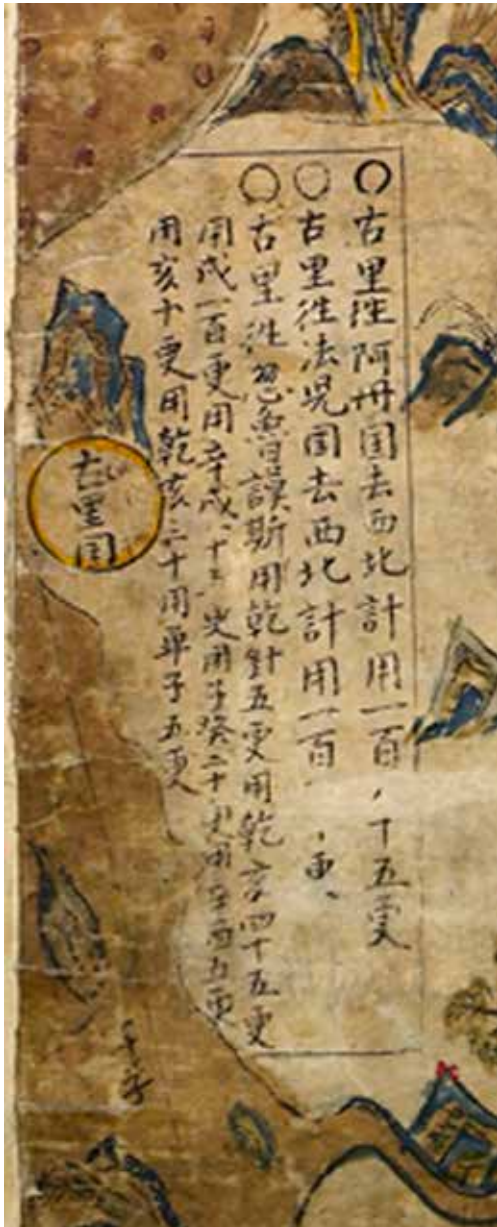 古里往阿丹国去西北計用一百 十五更
古里往法児国去西北計用一百 更
古里往忽魯謨斯用乾針五更用乾亥四十五更
用戌一百更用辛戌十 更用子癸二十更用辛酉五更
用亥十更用乾亥三十用单子五更
古里国